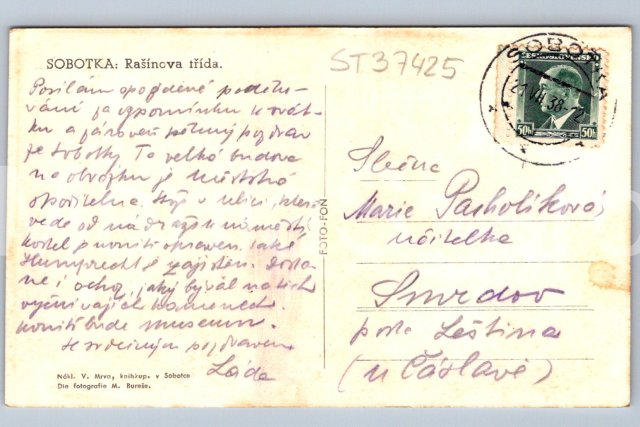 SOBOTKA: Rašínova třída.
ST37425
Posílám opožděné poděko-
vání za vzpomínku k svát-
ku a zároveň pěkný pozdrav
ze Sobotky. Ta velká budova
na obrázku je Městská
spořitelna. Stojí v ulici, která
vede od nádraží k náměstí.
Kostel je uvnitř opraven. Také
Humprecht je zajištěn. Dosta-
ne i ochoz, jaký býval na těch
vyčnívajících kamenech.
Uvnitř bude museum.
Se srdečným pozdravem
Láďa
Nákl. V. Mrva, knihkup. v Sobotce
Dle fotografie M. Bureše.
FOTO-FON
SOBOTKA
21.VII.38-12
ČESKOSLOVENSKO
50h 50h
Slečna
Marie Pacholíková
učitelka
Smrdov
pošta Leština
(u Čáslavě)